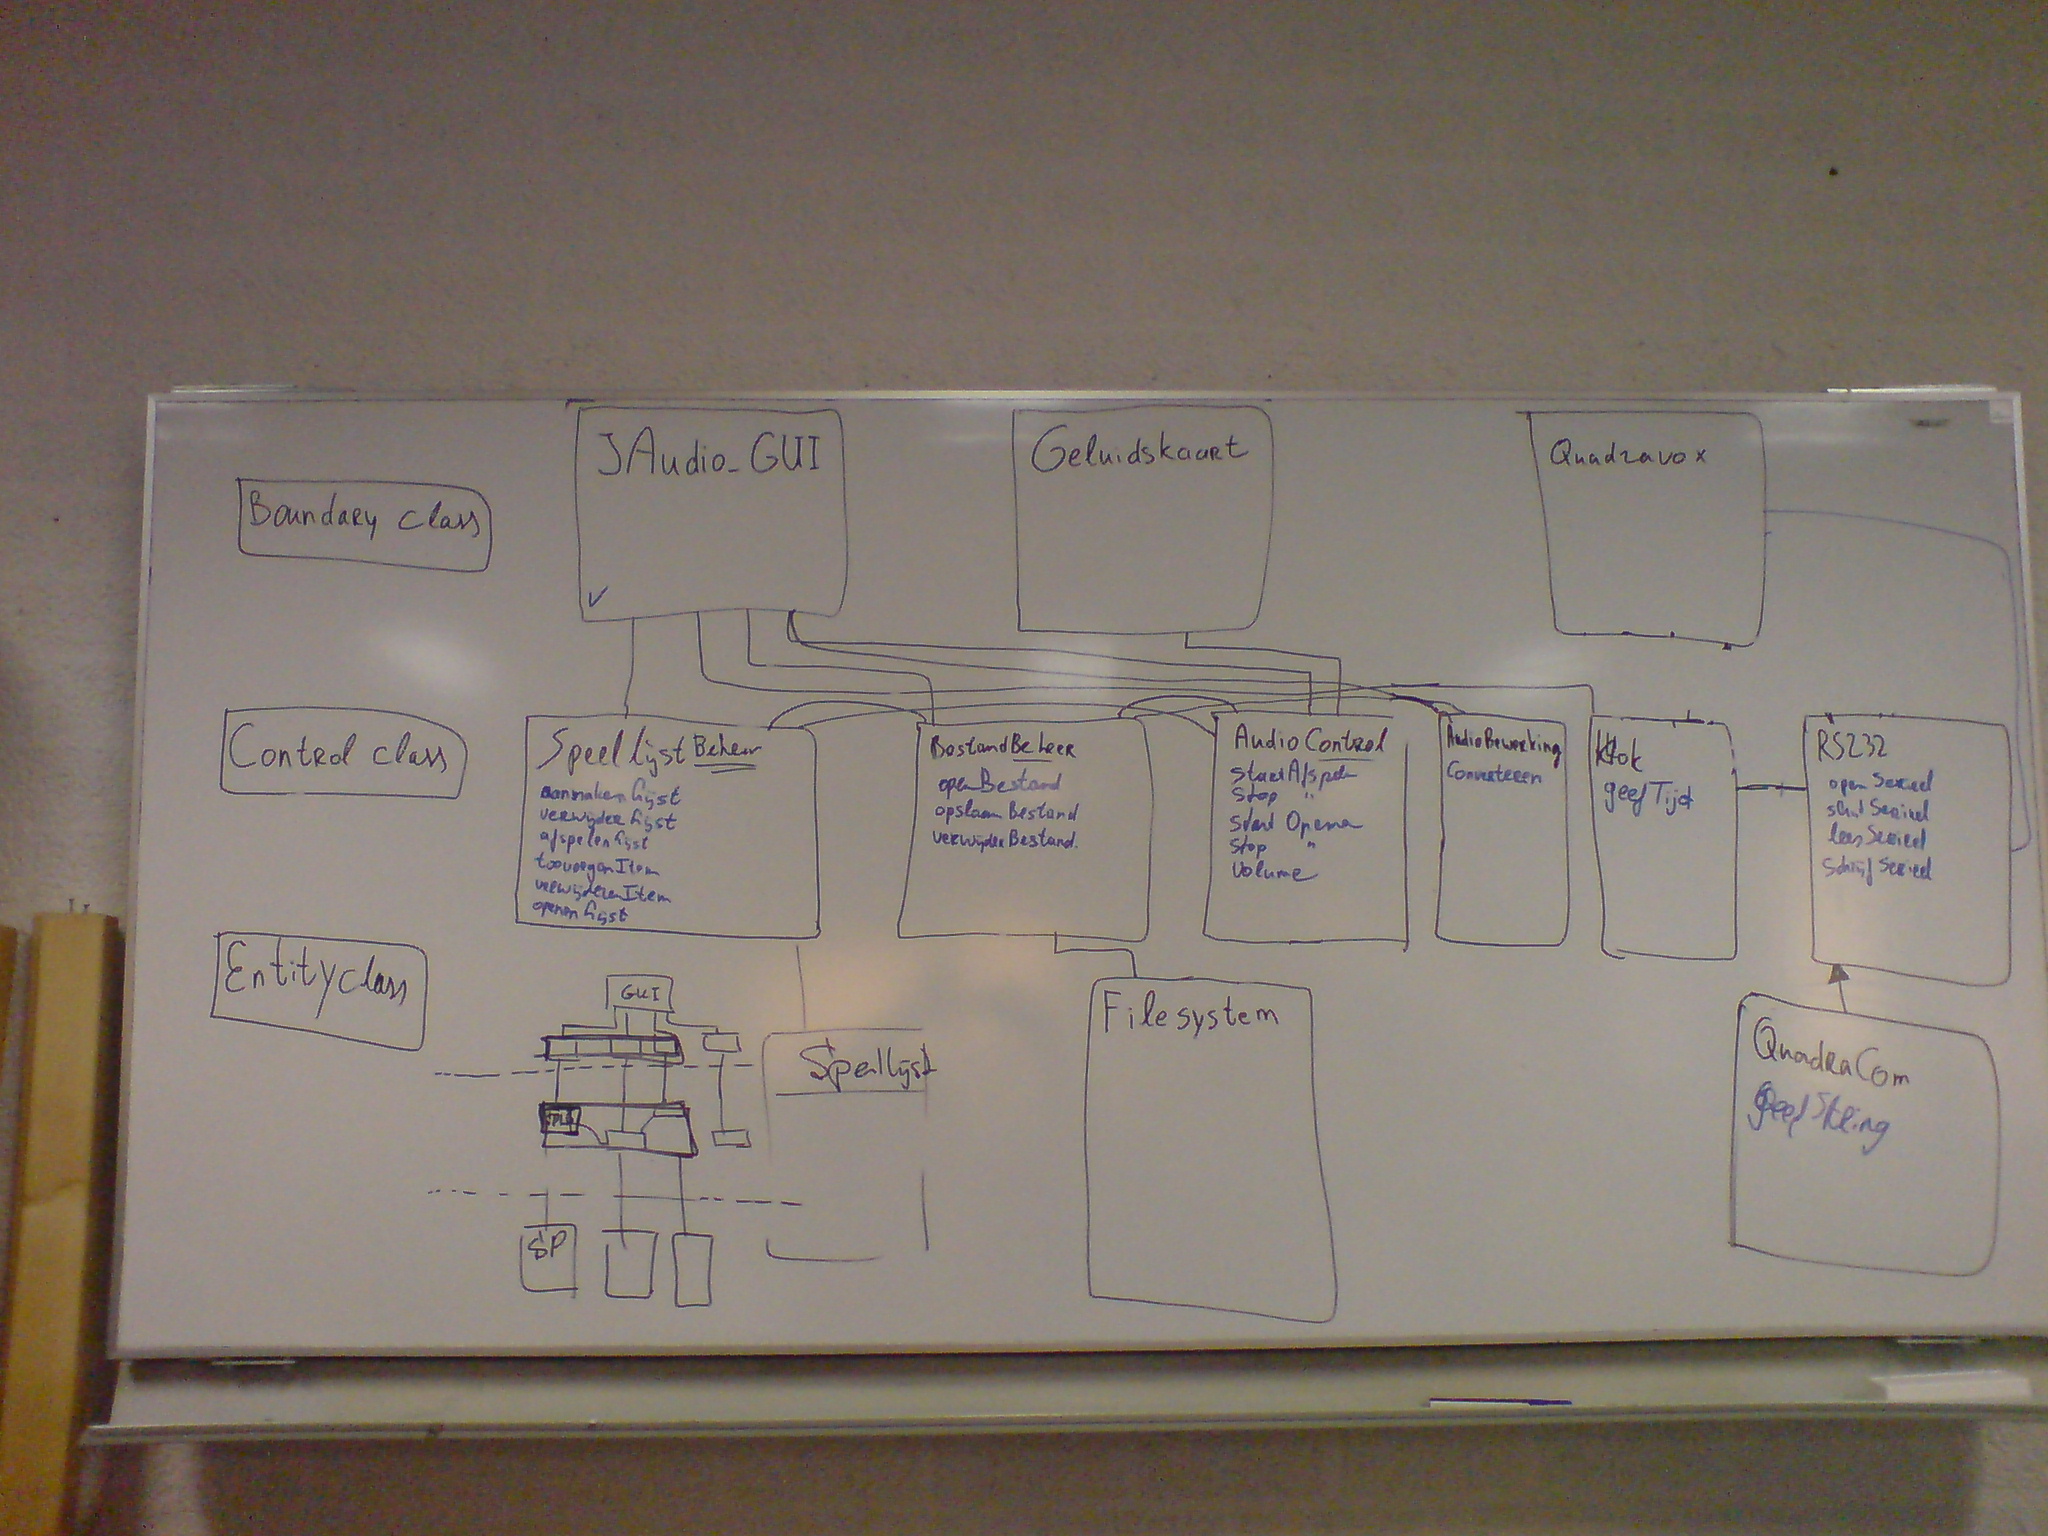 JAudio_GUI
Geluidskaart
Quadravox
Boundary class
Control class
SpeellijstBeheer
aanmakenLijst
verwijderLijst
afspelenLijst
toevoegenItem
verwijderenItem
openenLijst
BestandBeheer
openBestand
opslaanBestand
verwijderBestand.
AudioControl
startAfspelen
Stop "
Start Opname
Stop "
Volume
AudioBewerking
Converteren
Klok
geefTijd
RS232
openSerieel
sluitSerieel
leesSerieel
schrijfSerieel
Entity class
GUI
SP
Speellijst
Filesystem
QuadraCom
geefString